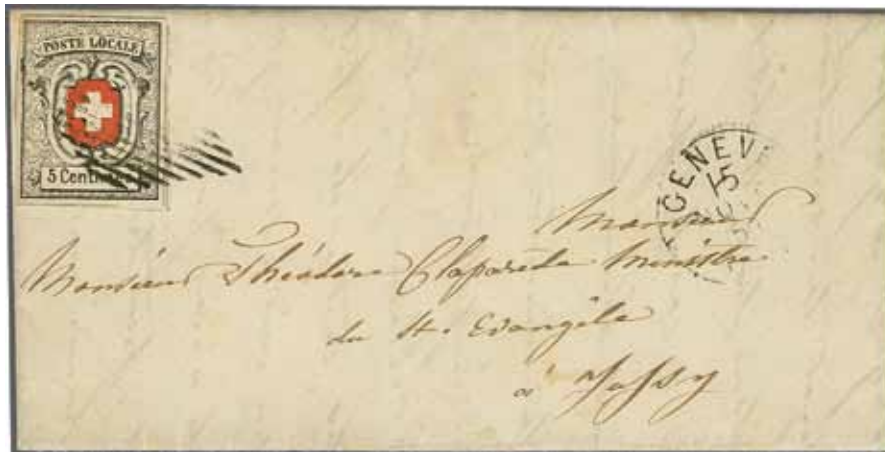 POSTE LOCALE
5 Cent
GENEV
15
Monsieur
Monsieur Théodore Claparède Ministre
du St. Evangile
à Jussy